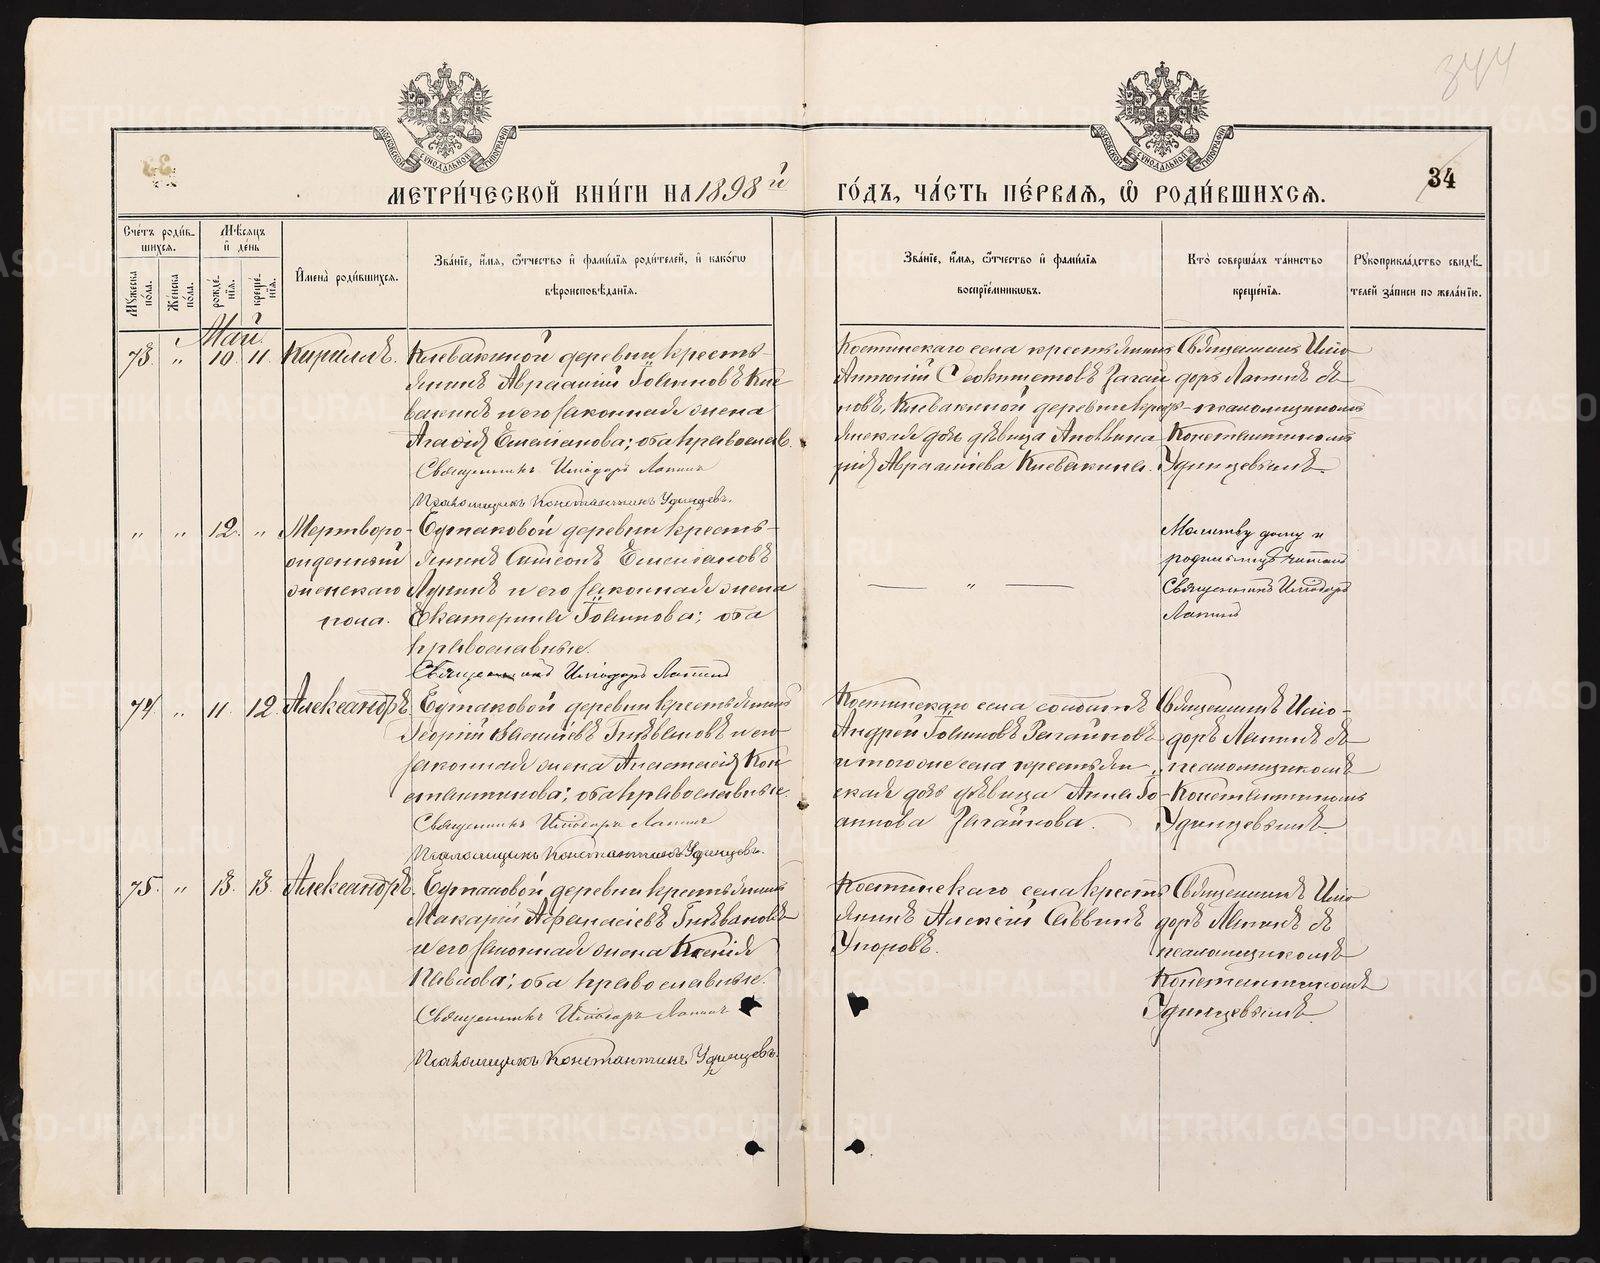 344
34
МЕТРИ́ЧЕСКОЙ КНИ́ГИ НА 1898й
ГО́ДЪ, ЧА́СТЬ ПЕ́РВАѦ, Ѿ РОДИ́ВШИХСѦ.
Сче́тъ роди́в-
шихсѧ.
Мꙋ́жеска по́ла.
Же́нска по́ла.
Мѣ́сяцъ
и де́нь
рожде́-
нїѧ.
креще́-
нїѧ.
Имена̀ роди́вшихсѧ.
Зва́нїе, имѧ, ѻ҆́тчество и фами́лїѧ роди́телей, и како́гѡ
вѣроисповѣ́данїѧ.
Зва́нїе, имѧ, ѻ҆́тчество и фами́лїѧ
воспрїе́мникѡвъ.
Кто̀ соверша́лъ та́инство
креще́нїѧ.
Рꙋкоприкла́дство свидѣ́-
телей за́писи по жела́нїю.
Май.
73. " 10. 11. Кириллъ.
Клевакиной деревни кресть-
янинъ Авраамій Іоанновъ Кле-
вакинъ и его законная жена
Агафія Емеліанова; оба православ.
Священникъ Исидоръ Лапинъ
Псаломщикъ Константинъ Удинцевъ.
Костинскаго села крестьянинъ
Антоній
Клевакиной деревни крестья-
янская дочь дѣвица
Авраамиева Клевакина.
Священникъ Исидоръ Лапинъ съ
псаломщикомъ
Константиномъ
Удинцевымъ.
" " 12. " Мертворо-
жденный
женскаго
пола.
Бутаковой деревни кресть-
янинъ Симеонъ Емельяновъ
и его законная жена
Екатерина Іоаннова; оба
православные.
Священникъ Исидоръ Лапинъ
"
Молитву дому и
родильницѣ читалъ
Священникъ Исидоръ
Лапинъ
74. " 11. 12. Александръ.
Бутаковой деревни крестьянинъ
Георгій Васильевъ Гнѣвановъ и его
законная жена Анастасія Кон-
стантинова; оба православные.
Священникъ Исидоръ Лапинъ
Псаломщикъ Константинъ Удинцевъ.
Костинскаго села солдатъ
Андрей Іоанновъ Загайновъ
и того же села крестьян-
ская дочь дѣвица Анна Іо-
аннова Загайнова.
Священникъ Исидо-
ръ Лапинъ съ
псаломщикомъ
Константиномъ
Удинцевымъ.
75. " 13. 13. Александръ.
Бутаковой деревни крестьянинъ
Макарій Афанасіевъ Гнѣвановъ
и его законная жена Ксенія
Павлова; оба православные.
Священникъ Исидоръ Лапинъ
Псаломщикъ Константинъ Удинцевъ.
Костинскаго села кресть-
янинъ Алексій Саввинъ
Упоровъ.
Священникъ Исидо-
ръ Лапинъ съ
псаломщикомъ
Константиномъ
Удинцевымъ.
METRIKI.GASO-URAL.RU